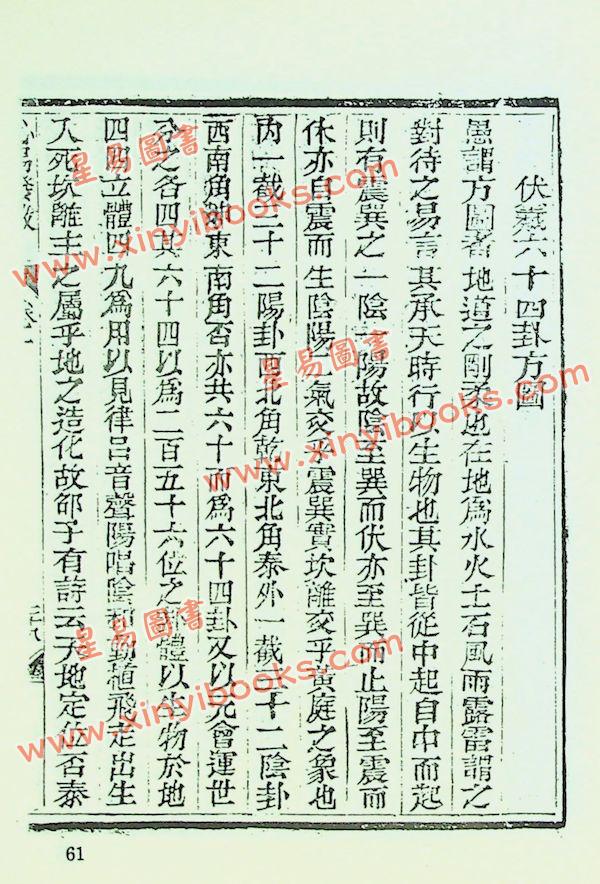 伏羲六十四卦方圖
愚謂方圖者地道之剛柔也在地爲水火土石風雨露雷謂之
對待之易言其承天時行以生物也其卦皆從中起自中而起
則有震巽之一陰一陽故陰至巽而伏亦至巽而止陽至震而
休亦自震而生陰陽二氣交乎震巽實坎離交乎黃庭之象也
內一截三十二陽卦西北角乾東北角泰外一截三十二陰卦
西南角東南角否亦共六十而爲六十四卦又以元會運世
分之各四其六十四以爲二百五十六位之體以生物於地
四陽立體四九爲用以見律呂音聲陽唱陰和動植飛走出生
入死坎離主之屬乎地之造化故邵子有詩云天地定位否泰
卷一
61
星易圖書
www.xinyibooks.com
星易圖書
www.xinyibooks.com
星易圖書
www.xinyibooks.com
星易圖書
www.xinyibooks.com